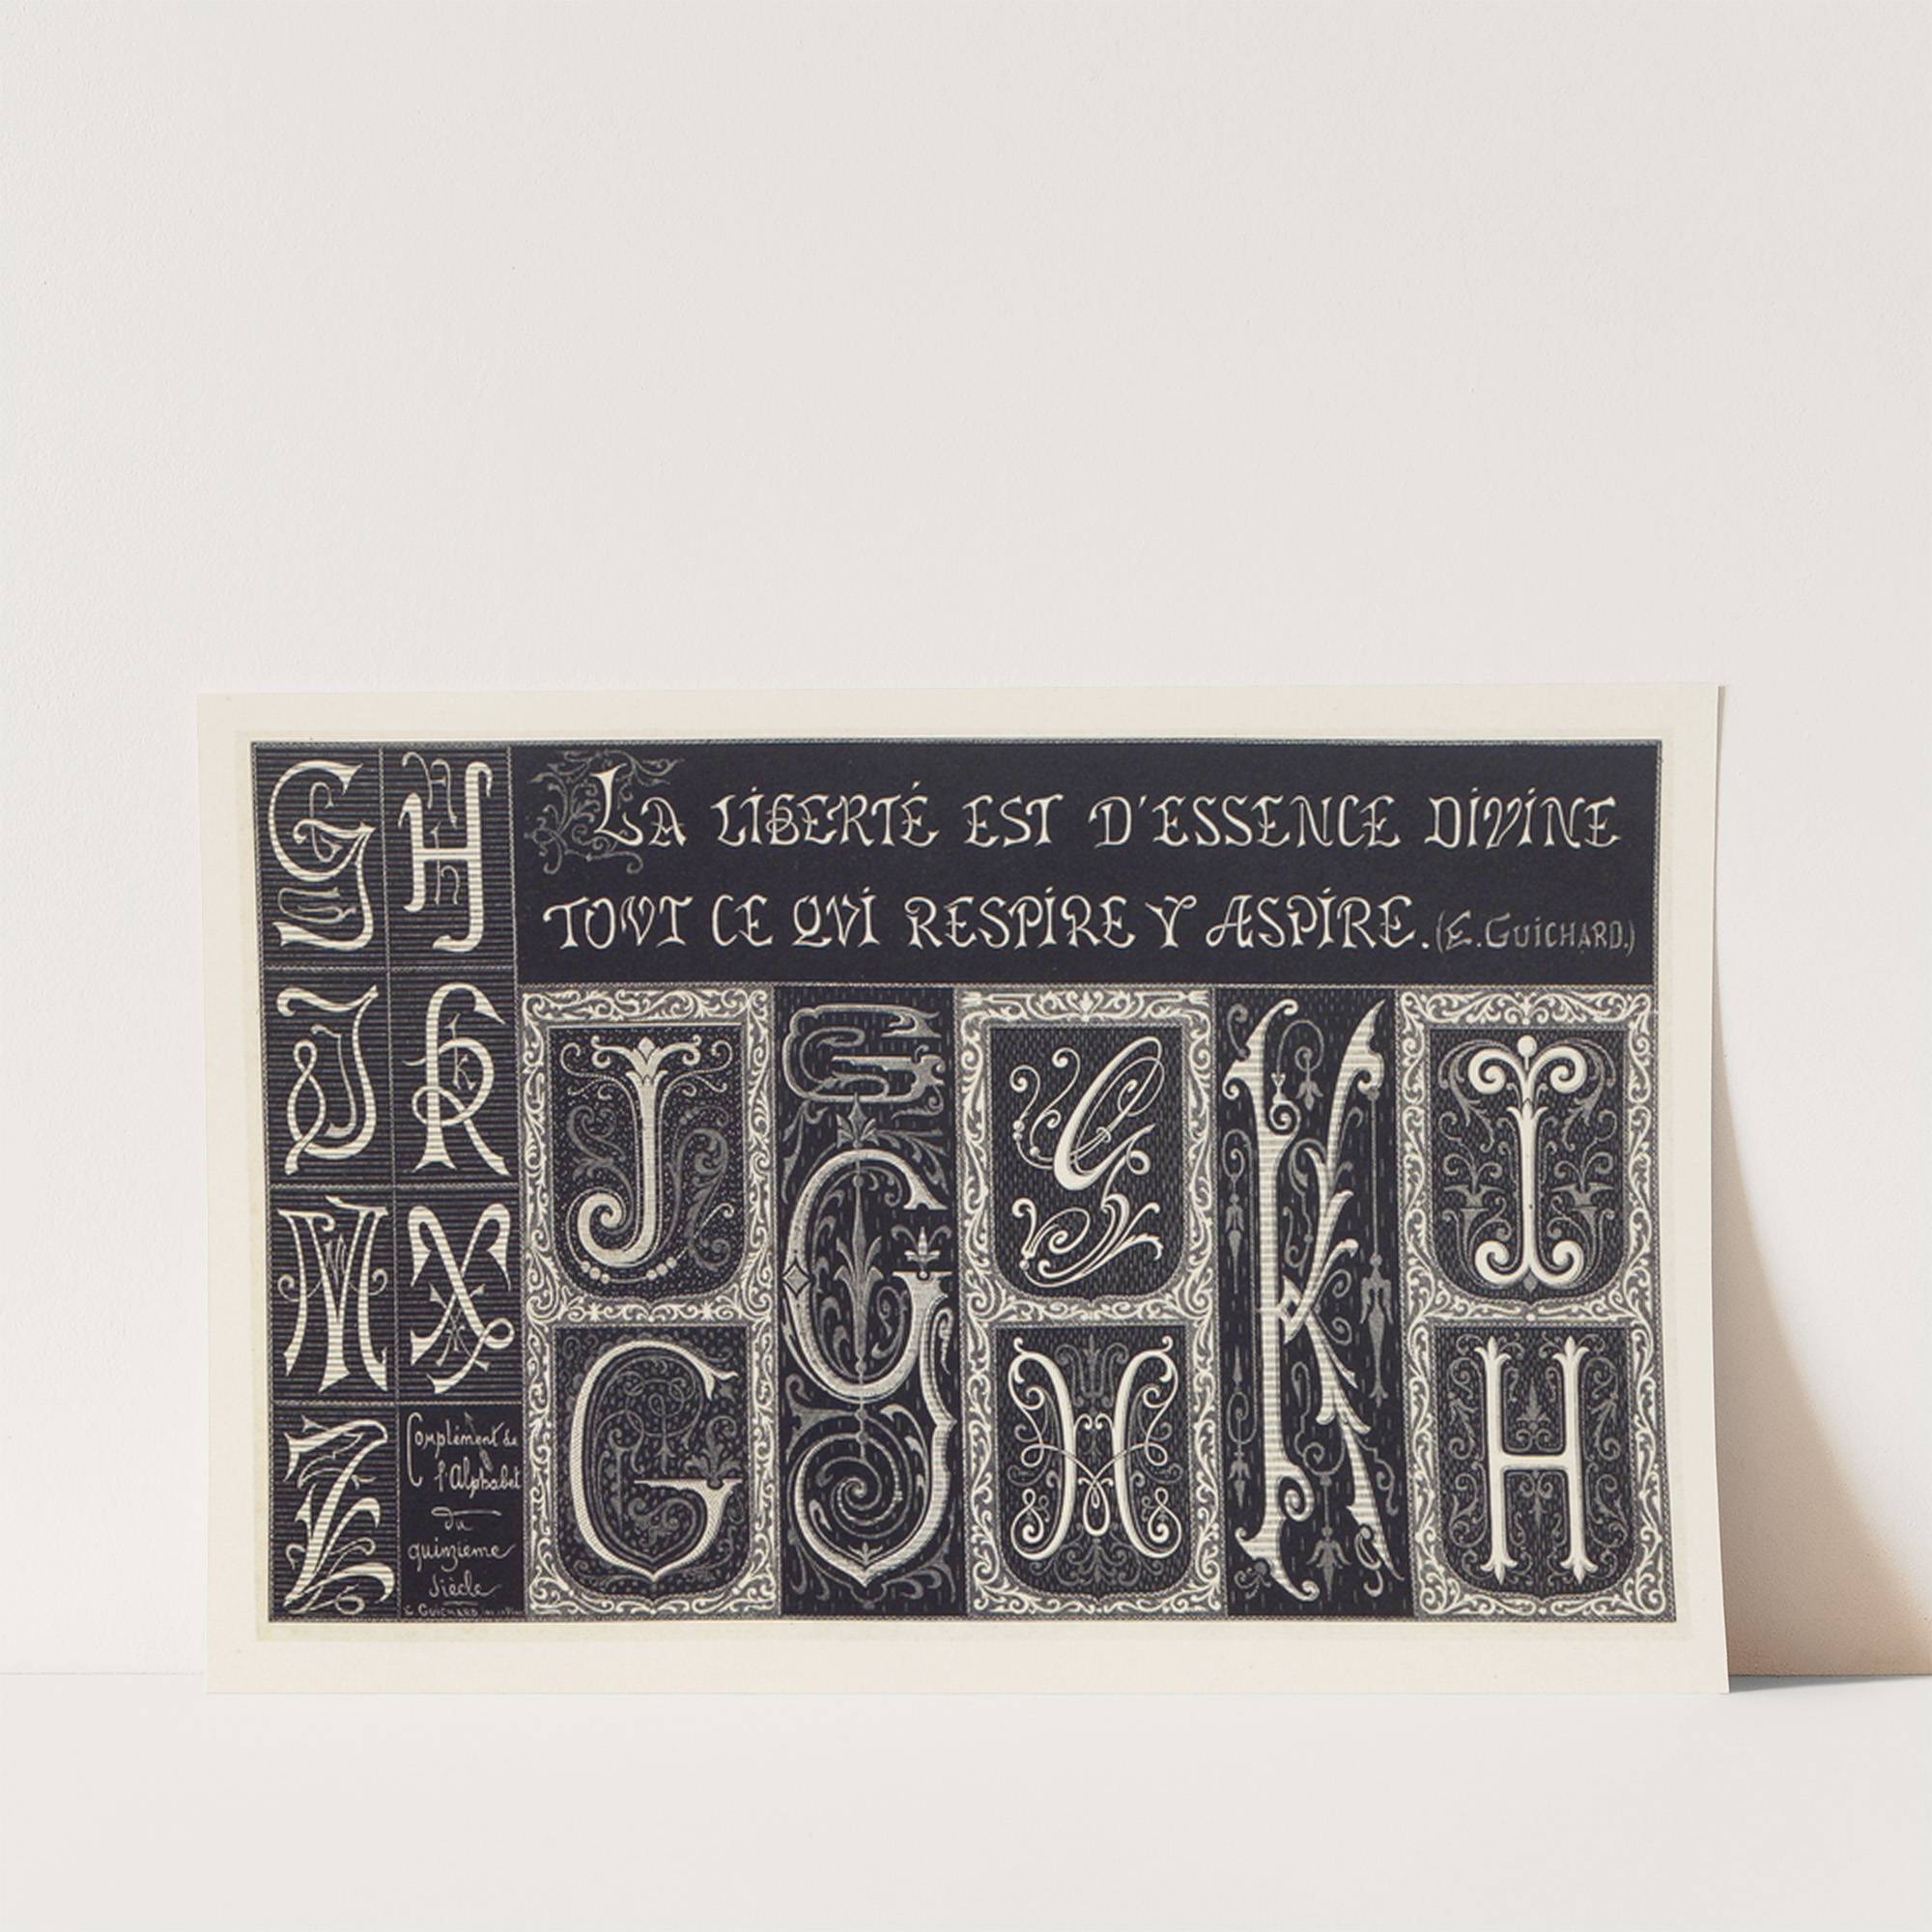 LA LIBERTÉ EST D'ESSENCE DIVINE
TOVT CE QVI RESPIRE Y ASPIRE. (E. GUICHARD.)
G H
J K
M X
Z
Complément de
l'Alphabet
du
quinzieme
Siècle
E. GUICHARD
J G G G H K I H